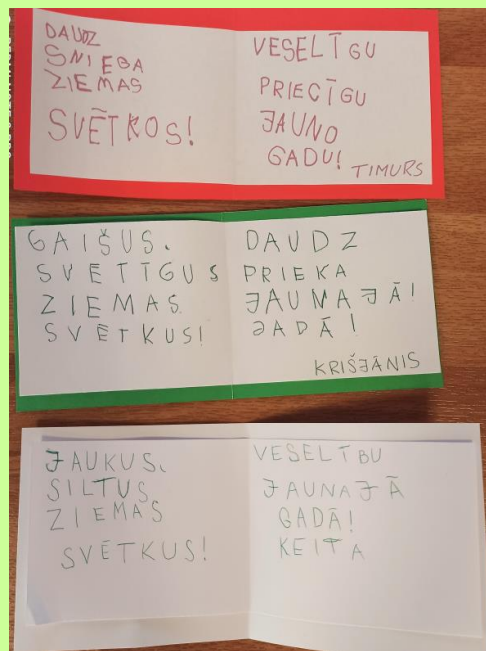 DAUDZ
SNIEGA
ZIEMAS
SVĒTKOS!
VESELĪGU
PRIECĪGU
JAUNO
GADU!
TIMURS
GAIŠUS,
SVĒTĪGUS
ZIEMAS
SVĒTKUS!
DAUDZ
PRIEKA
JAUNAJĀ!
GADĀ!
KRIŠJĀNIS
JAUKUS,
SILTUS
ZIEMAS
SVĒTKUS!
VESELĪBU
JAUNAJĀ
GADĀ!
KEITA